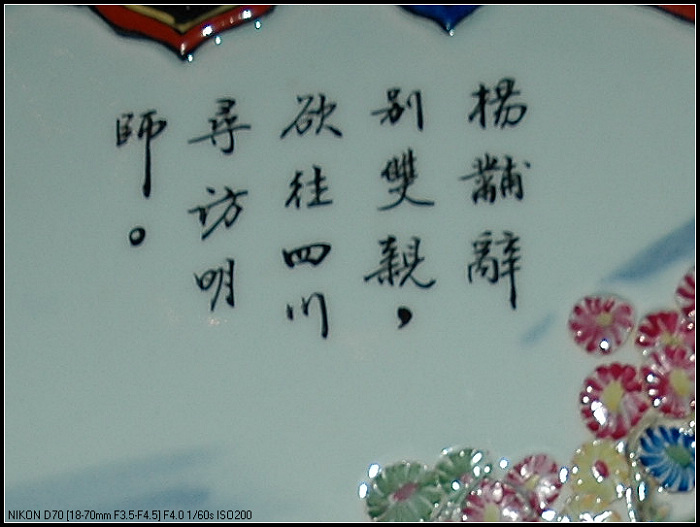 楊黼辭
別雙親，
欲往四川
尋訪明
師。
NIKON D70 [18-70mm F3.5-F4.5] F4.0 1/60s ISO200